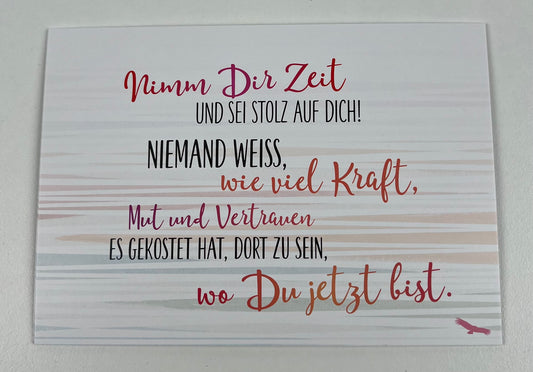 Nimm Dir Zeit
UND SEI STOLZ AUF DICH!
NIEMAND WEISS,
wie viel Kraft,
Mut und Vertrauen
ES GEKOSTET HAT, DORT ZU SEIN,
wo Du jetzt bist.